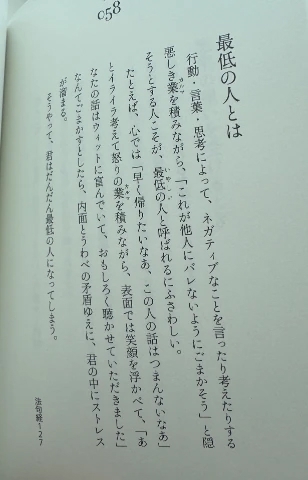 058
最低の人とは
行動・言葉・思考によって、ネガティブなことを言ったり考えたりする
悪しき業を積みながら、「これが他人にバレないようにごまかそう」と隠
そうとする人こそが、最低の人と呼ばれるにふさわしい。
たとえば、心では「早く帰りたいなあ、この人の話はつまんないなあ」
とイライラ考えて怒りの業を積みながら、表面では笑顔を浮かべて、「あ
なたの話はウィットに富んでいて、おもしろく聴かせていただきました」
なんてごまかすとしたら、内面とうわべの矛盾ゆえに、君の中にストレス
が溜まる。
そうやって、君はだんだん最低の人になってしまう。
法句経127